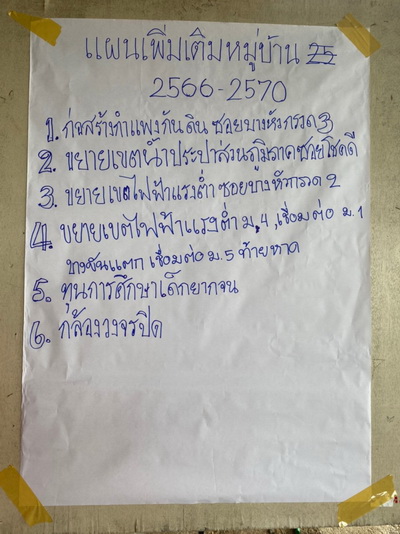 แผนเพิ่มเติมหมู่บ้าน
2566-2570
1. ก่อสร้างกำแพงกันดิน ซอยบางหัวกรวด 3
2. ขยายเขตน้ำประปาส่วนภูมิภาคซอยโชคดี
3. ขยายเขตไฟฟ้าแรงต่ำ ซอยบางหัวกรวด 2
4. ขยายเขตไฟฟ้าแรงต่ำ ม.4, เชื่อมต่อ ม.1
เชื่อมต่อ ม.5 ท้ายหาด
5. ทุนการศึกษาเด็กยากจน
6. กล้องวงจรปิด